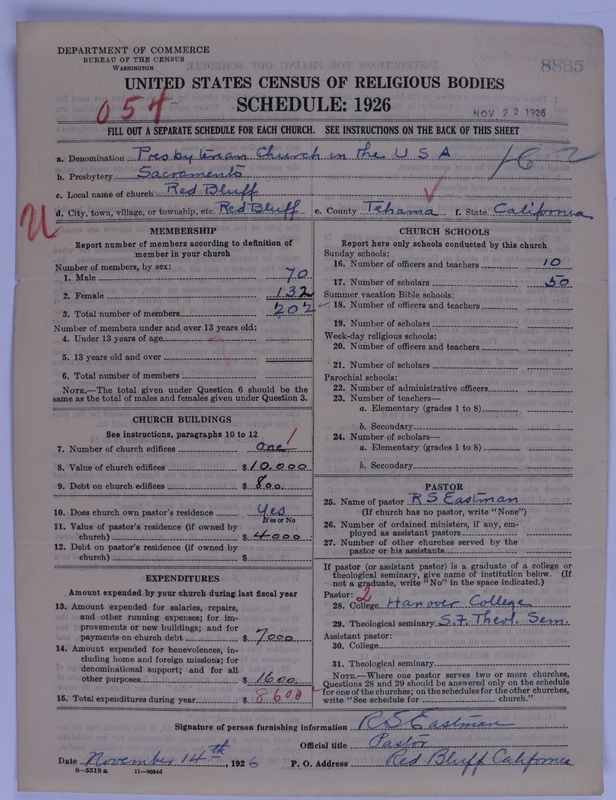 DEPARTMENT OF COMMERCE
BUREAU OF THE CENSUS
WASHINGTON
8885
UNITED STATES CENSUS OF RELIGIOUS BODIES
SCHEDULE: 1926
054
NOV 22 1926
FILL OUT A SEPARATE SCHEDULE FOR EACH CHURCH. SEE INSTRUCTIONS ON THE BACK OF THIS SHEET
a. Denomination Presbyterian Church in the U S A
162
b. Presbytery Sacramento
c. Local name of church Red Bluff
U
d. City, town, village, or township, etc. Red Bluff e. County Tehama f. State California
MEMBERSHIP
Report number of members according to definition of
member in your church
Number of members, by sex:
1. Male 70
2. Female 132
3. Total number of members 202
Number of members under and over 13 years old:
4. Under 13 years of age
5. 13 years old and over
6. Total number of members
NOTE.—The total given under Question 6 should be the
same as the total of males and females given under Question 3.
CHURCH BUILDINGS
See instructions, paragraphs 10 to 12
7. Number of church edifices one 1
8. Value of church edifices $10.000
9. Debt on church edifices $ 800.
10. Does church own pastor's residence Yes
Yes or No
11. Value of pastor's residence (if owned by
church) $ 4000
12. Debt on pastor's residence (if owned by
church) $
EXPENDITURES
Amount expended by your church during last fiscal year
13. Amount expended for salaries, repairs,
and other running expenses; for im-
provements or new buildings; and for
payments on church debt $ 7000
14. Amount expended for benevolences, in-
cluding home and foreign missions; for
denominational support; and for all
other purposes $ 1600
15. Total expenditures during year $ 8600
CHURCH SCHOOLS
Report here only schools conducted by this church
Sunday schools:
16. Number of officers and teachers 10
17. Number of scholars 50
Summer vacation Bible schools:
18. Number of officers and teachers
19. Number of scholars
Week-day religious schools:
20. Number of officers and teachers
21. Number of scholars
Parochial schools:
22. Number of administrative officers
23. Number of teachers—
a. Elementary (grades 1 to 8)
b. Secondary
24. Number of scholars—
a. Elementary (grades 1 to 8)
b. Secondary
PASTOR
25. Name of pastor R S Eastman
(If church has no pastor, write "None")
26. Number of ordained ministers, if any, em-
ployed as assistant pastors
27. Number of other churches served by the
pastor or his assistants
If pastor (or assistant pastor) is a graduate of a college or
theological seminary, give name of institution below. (If
not a graduate, write "No" in the space indicated.)
Pastor: 2
28. College Hanover College
29. Theological seminary S.F. Theol. Sem.
Assistant pastor:
30. College
31. Theological seminary
NOTE.—Where one pastor serves two or more churches,
Questions 28 and 29 should be answered only on the schedule
for one of the churches; on the schedules for the other churches,
write "See schedule for church."
Signature of person furnishing information R S Eastman
Official title Pastor
Date November 14th, 1926 P. O. Address Red Bluff California
8—5518 a